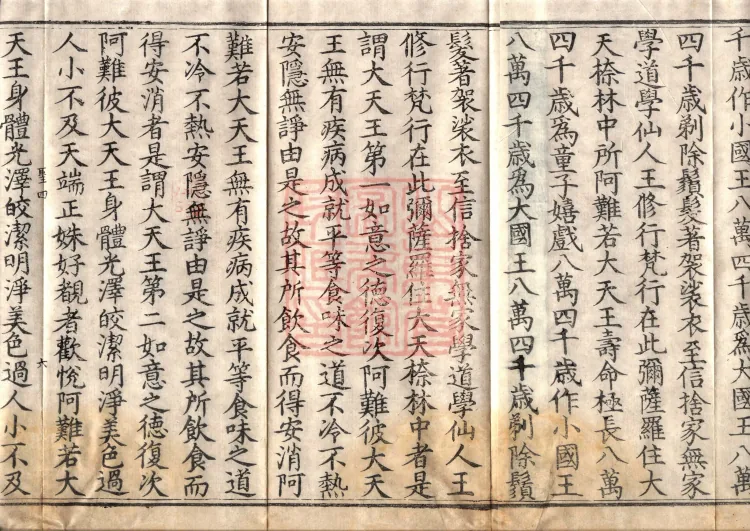 千歲作小國王八萬四千歲爲大國王八
四千歲剃除鬚髮著袈裟衣至信捨家無家
學道學仙人王修行梵行在此彌薩羅住大
天㮈林中所阿難若大天王壽命極長八萬
四千歲爲童子嬉戲八萬四千歲作小國王
八萬四千歲爲大國王八萬四千歲剃除鬚
髮著袈裟衣至信捨家無家學道學仙人王
修行梵行在此彌薩羅住大天㮈林中者是
謂大天王第一如意之德復次阿難彼大天
王無有疾病成就平等食味之道不冷不熱
安隱無諍由是之故其所飲食而得安消阿
難若大天王無有疾病成就平等食味之道
不冷不熱安隱無諍由是之故其所飲食而
得安消者是謂大天王第二如意之德復次
阿難彼大天王身體光澤皎潔明淨美色過
人小不及天端正姝好覩者歡悅阿難若大
聖四
六
天王身體光澤皎潔明淨美色過人小不及